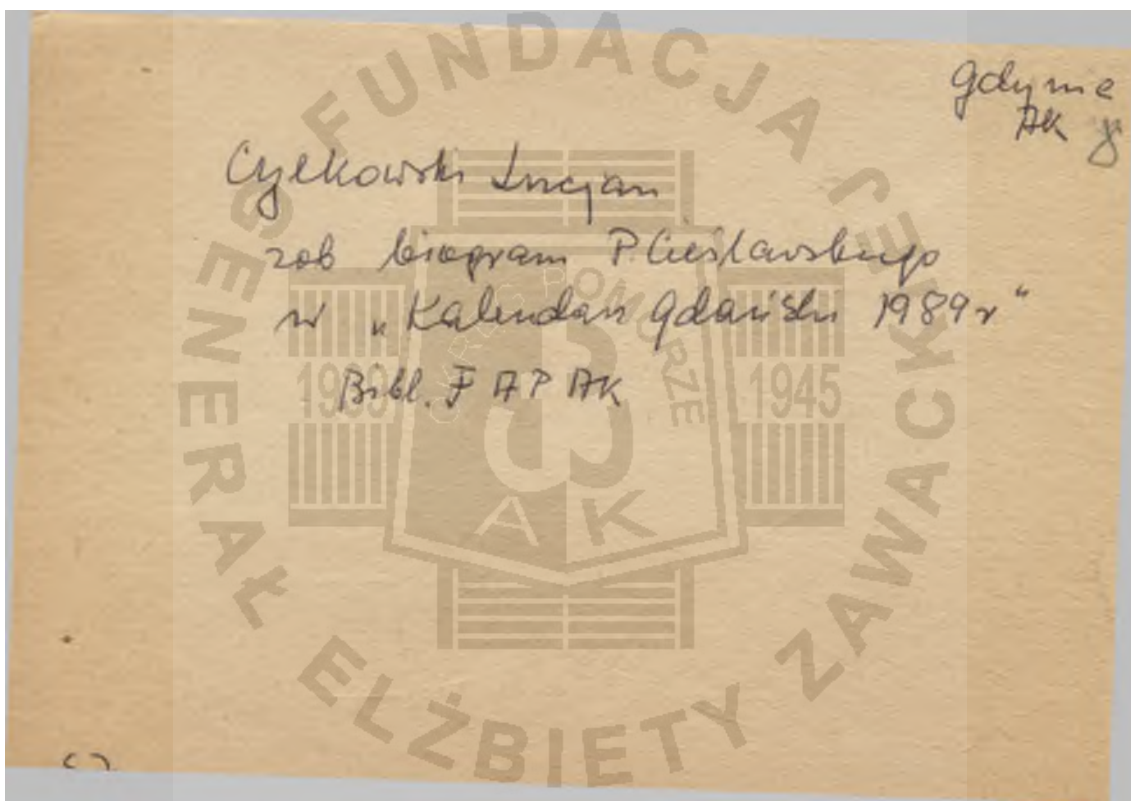 Gdynia
AK
Cylkowski Lucjan
zob biogram P. Cieślawskiego
w „Kalendarz Gdański 1989r"
Bibl. F AP AK
FUNDACJA GENERAŁ ELŻBIETY ZAWACKIEJ
OKRĘG POMORZE
1939 1945
AK